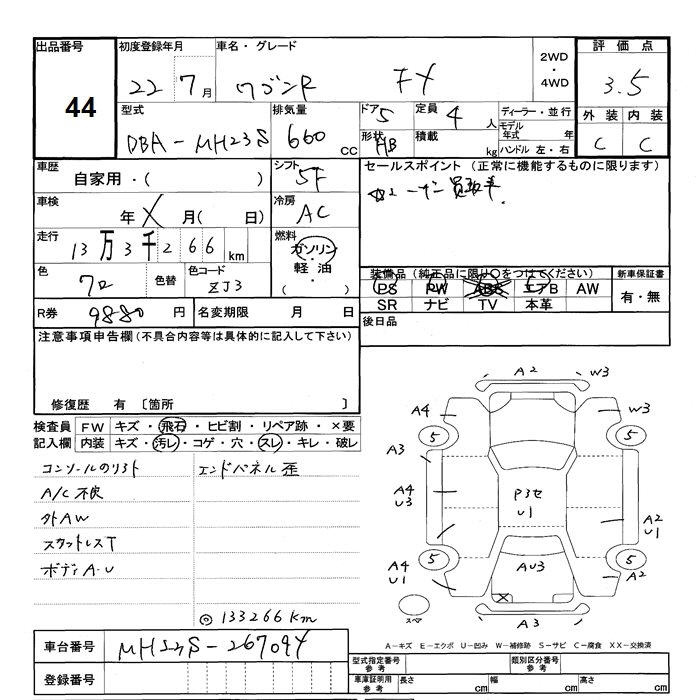 出品番号
44
初度登録年月
22 7月
車名・グレード
ワゴンR FX
2WD
・
4WD
評価点
3.5
外装 内装
C C
型式
DBA-MH23S
排気量
660 CC
ドア 5
形状 HB
定員 4 人
積載 kg
ディーラー・並行
モデル年式 年
ハンドル 左・右
車歴
自家用・( )
シフト
5F
車検
年 X 月( 日)
冷房
AC
走行
13万3千266 km
燃料
ガソリン
軽油
( )
色
クロ
色替
色コード
ZJ3
R券 9880 円
名変期限 月 日
セールスポイント (正常に機能するものに限ります)
装備品 (純正品に限り○をつけてください)
PS PW ABS エアB AW
SR ナビ TV 本革
新車保証書
有・無
後日品
注意事項申告欄(不具合内容等は具体的に記入して下さい)
修復歴 有 〔箇所 〕
検査員記入欄
FW キズ・飛石・ヒビ割・リペア跡・×要
内装 キズ・汚レ・コゲ・穴・スレ・キレ・破レ
コンソールのリフト
A/C 不良
外AW
スタットレスT
ボディA・U
エンドパネル歪
◎133266km
車台番号 MH23S-267094
登録番号
A2
W3
A4
W3
5
5
A3
A4
U3
P3セ
U1
A2
U1
A4
U1
5
5
AU3
A2
X
スペア
A3
A-キズ E-エクボ U-凹み W-補修跡 S-サビ C-腐食 XX-交換済
型式指定番号
参考
類別区分番号
参考
車庫証明用
参考
長さ cm 幅 cm 高さ cm